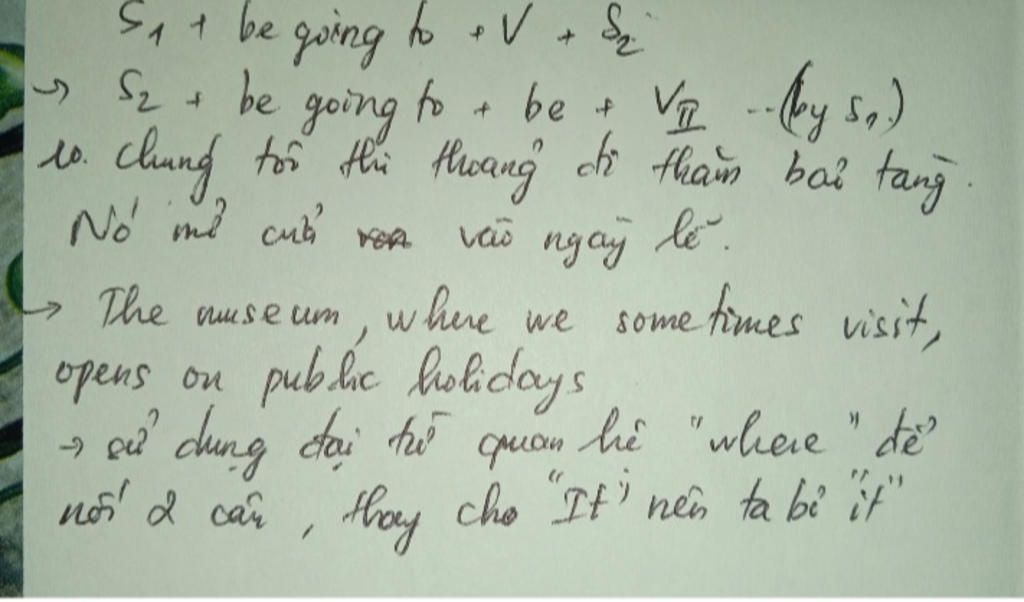 S1 + be going to + V + S2
→ S2 + be going to + be + VII ... (by S1)
10. Chúng tôi thi thoảng đi thăm bảo tàng.
Nó mở cửa vào ngày lễ.
→ The museum, where we sometimes visit,
opens on public holidays
→ sử dụng đại từ quan hệ "where" để
nối 2 câu, thay cho "It" nên ta bỏ "it"